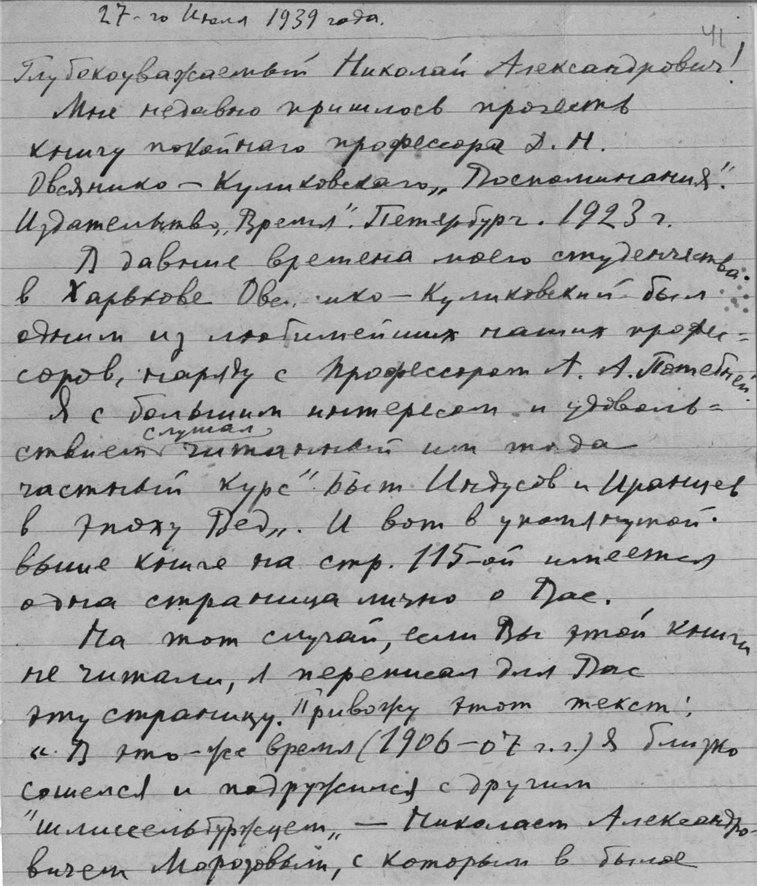 27-го Июля 1939 года.
41
Глубокоуважаемый Николай Александрович!
Мне недавно пришлось прочесть
книгу покойнаго профессора Д. Н.
Овсянико-Куликовскаго „Воспоминания".
Издательство „Время". Петербург. 1923 г.
В давние времена моего студенчества
в Харькове Овс ико-Куликовский был
одним из любимейших наших профес=
соров, наряду с профессором А. А. Потебней.
Я с большим интересом и удоволь=
ствием слушал читанный им тогда
частный курс "Быт Индусов и Иранцев
в эпоху Вед„. И вот в упомянутой
выше книге на стр. 115-ой имеется
одна страница лично о Вас.
На тот случай, если Вы этой книги
не читали, я переписал для Вас
эту страницу. Привожу этот текст:
„В это-же время (1906-07 г.г.) я близко
сошелся и подружился с другим
"шлиссельбуржцем„ — Николаем Александро-
вичем Морозовым, с которым в былое